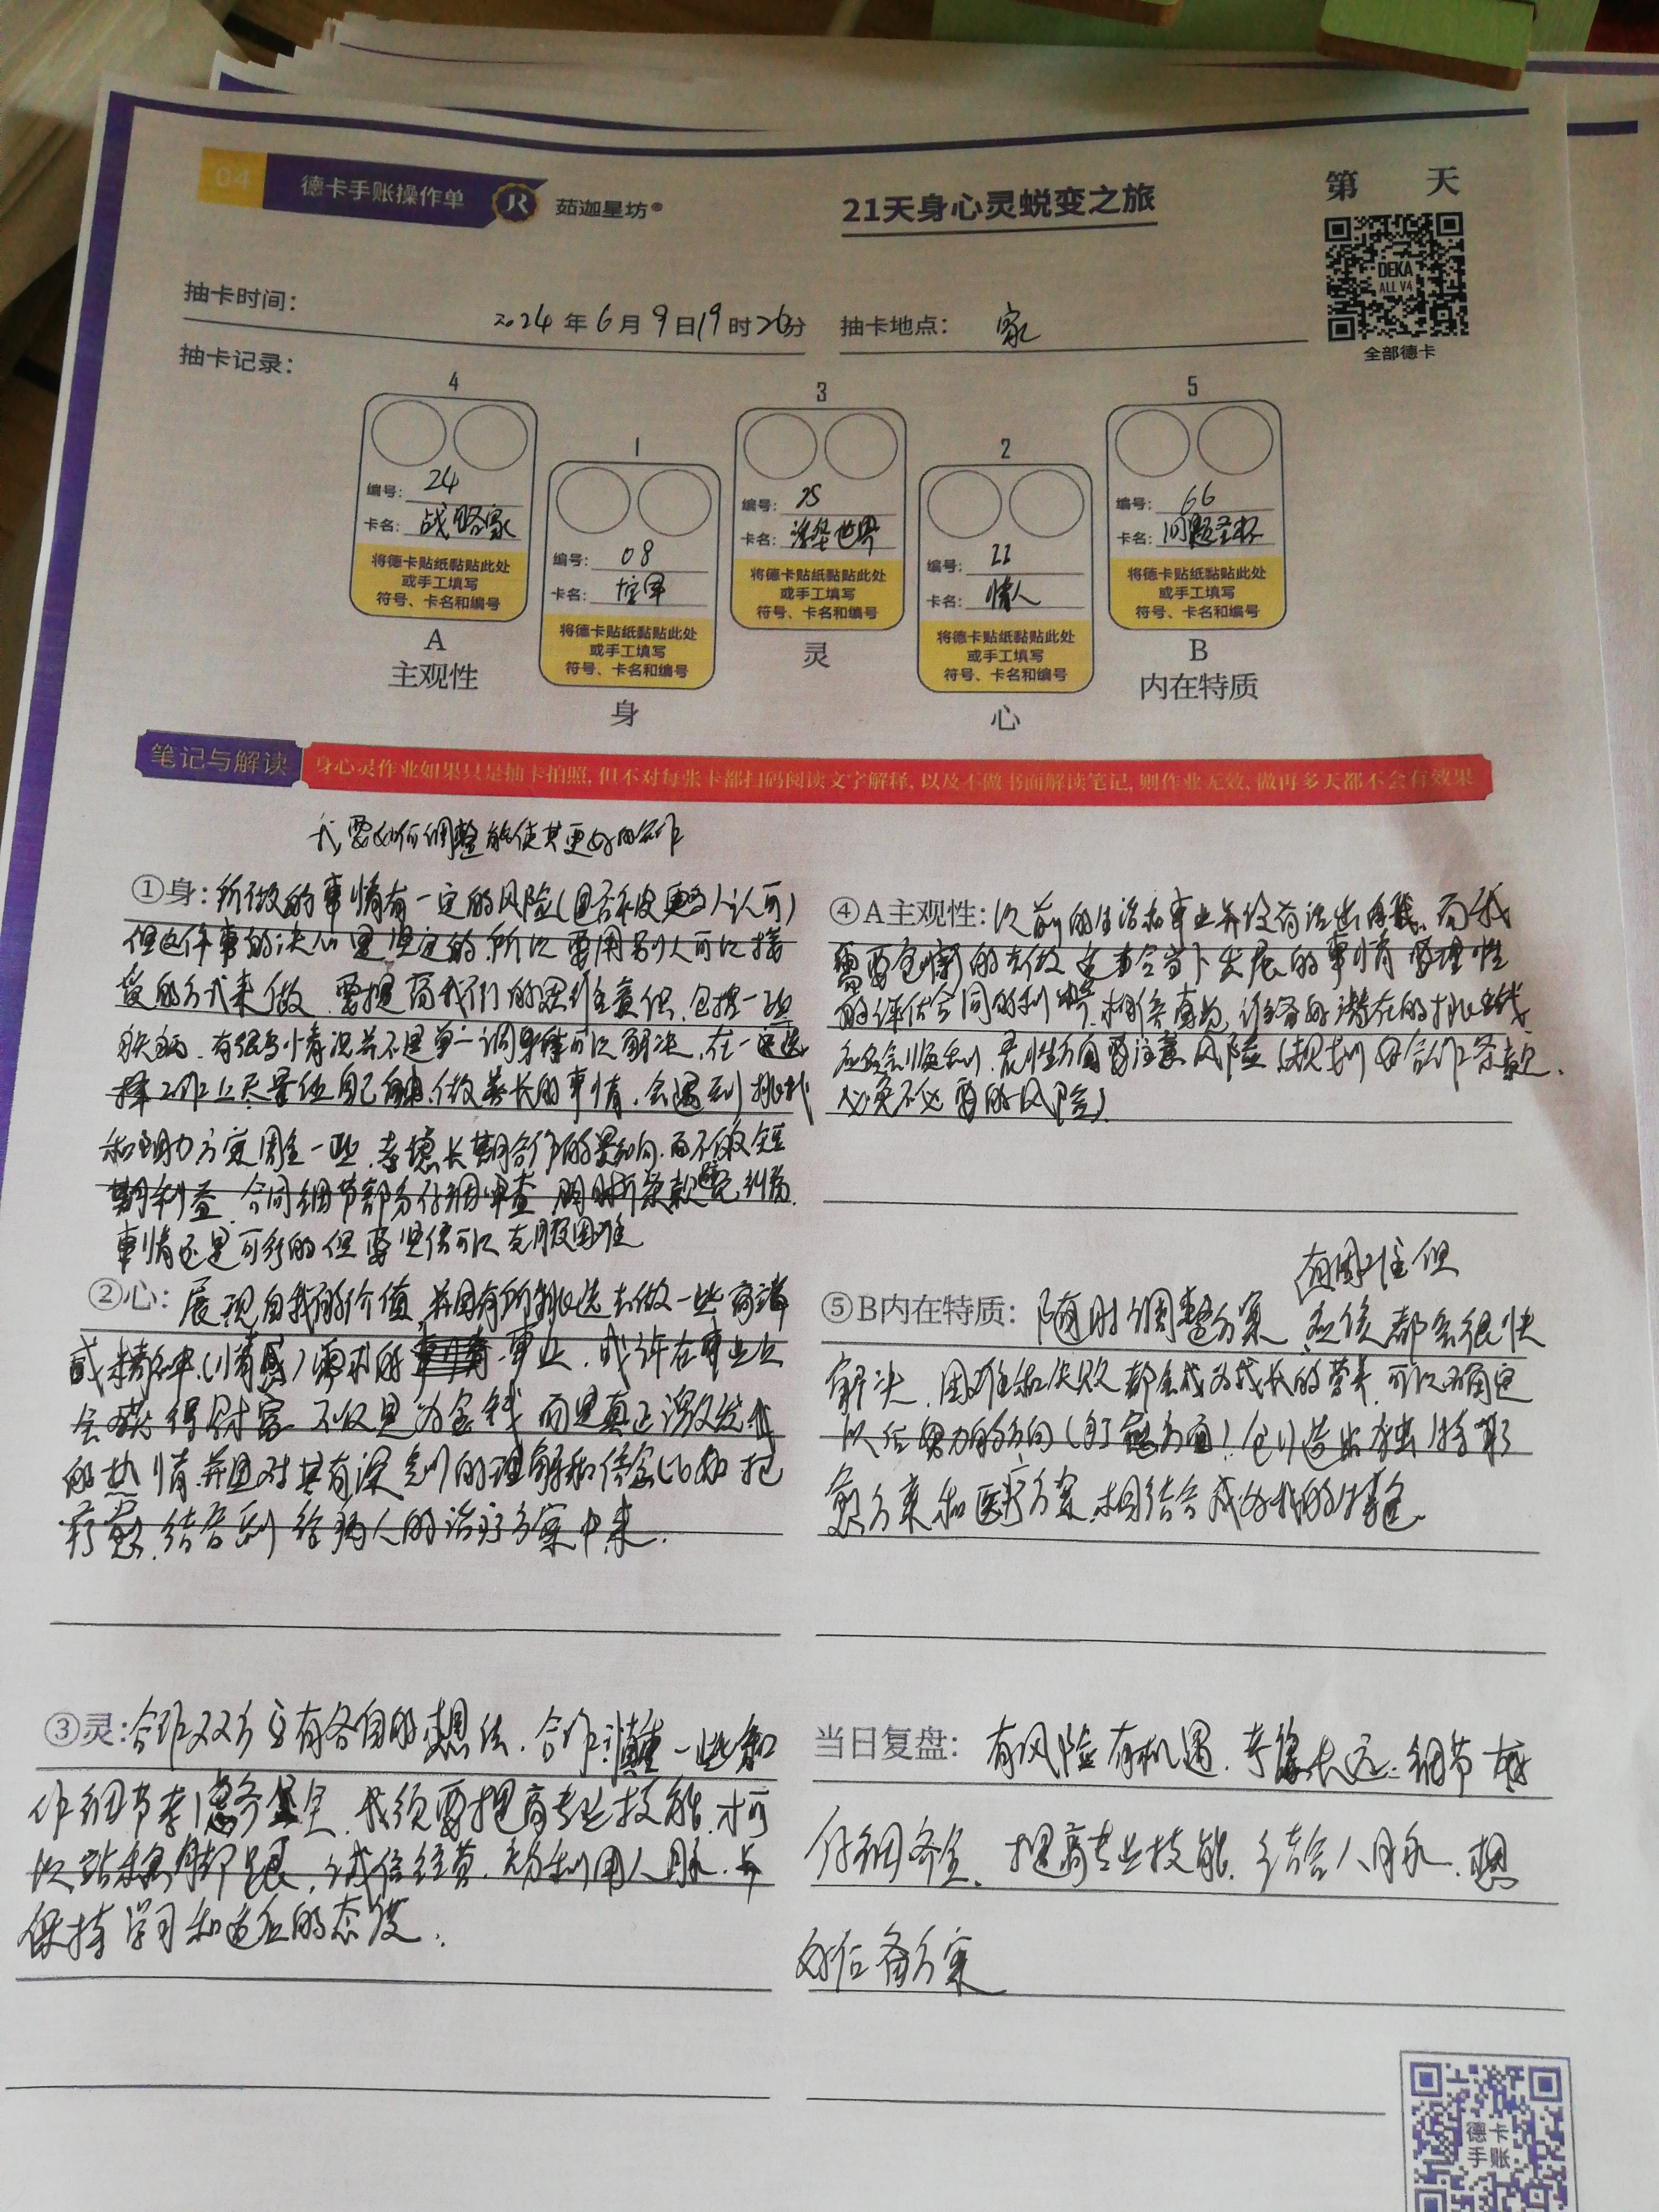 04 德卡手账操作单 JR 茹迦星坊
21天身心灵蜕变之旅
第 天
DEKA
ALL V4
全部德卡
抽卡时间: 2024年6月9日19时26分 抽卡地点: 家
抽卡记录:
4
编号: 24
卡名: 战略家
将德卡贴纸黏贴此处
或手工填写
符号、卡名和编号
A
主观性
1
编号: 08
卡名:
将德卡贴纸黏贴此处
或手工填写
符号、卡名和编号
身
3
编号:
卡名: 世界
将德卡贴纸黏贴此处
或手工填写
符号、卡名和编号
灵
2
编号: 22
卡名: 情人
将德卡贴纸黏贴此处
或手工填写
符号、卡名和编号
心
5
编号: 66
卡名: 问题圣杯
将德卡贴纸黏贴此处
或手工填写
符号、卡名和编号
B
内在特质
笔记与解读 身心灵作业如果只是抽卡拍照, 但不对每张卡都扫码阅读文字解释, 以及不做书面解读笔记, 则作业无效, 做再多天都不会有效果
我要如何调整能使其更好的合作
①身: 所做的事情有一定的风险(是否被人认可)
但这件事的决心是坚定的.所以要用别人可以接
受的方式来做.要提高我们的思维意识.包括一些
疾病.有很多情况并不是单一调可以解决.在一
工作上尽量做自己擅长的事情.会遇到挑战
和阻力方案周全一些.考虑长期合作的影响.而不做短
期利益.合同细节部分仔细审查 条款避免纠纷
事情还是可行的但要坚信可以克服困难
②心: 展现自我的价值.并有所挑选去做一些高端
或精神(情感)需求的事业.或许在事业上
会获得财富 不仅是为金钱 而是真正激发我
的热情.并且对其有深刻的理解和信念(比如把
疗愈.结合到给病人的治疗方案中来.
③灵: 合作双方立有各自的想法.合作一些
作细节考虑齐全.我须要提高专业技能.才可
以站稳脚跟.诚信经营.利用人脉.并
保持学习和适应的态度.
④A主观性: 以前的生活和事业并没有活出自我.而我
需要创新的去做 当下发展的事情 要理性
的评估合同的利弊.相信直觉.准备好潜在的挑战
应该会顺利.感性方面要注意风险(规划好合作条款.
必免不必要的风险)
有困难但
⑤B内在特质: 随时调整方案 应该都会很快
解决.困难和失败都会成为成长的营养.可以确定
以后努力的方向(方面)创造出独特疗
愈方案和医疗方案.相结合成为我的特色.
当日复盘: 有风险有机遇.考虑长远.细节
仔细齐全.提高专业技能.结合人脉.想
好后备方案
德卡
手账